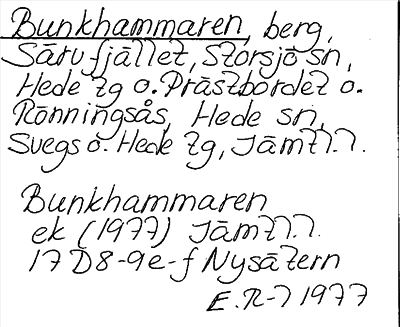 Bunkhammaren, berg,
Särvfjället, Storsjö sn,
Hede tg o. Prästbordet o.
Rönningsås, Hede sn,
Svegs o. Hede tg, Jämtl.l.
Bunkhammaren
ek (1977) Jämtl.l.
17D8-9e-f Nysätern
E.R-l 1977